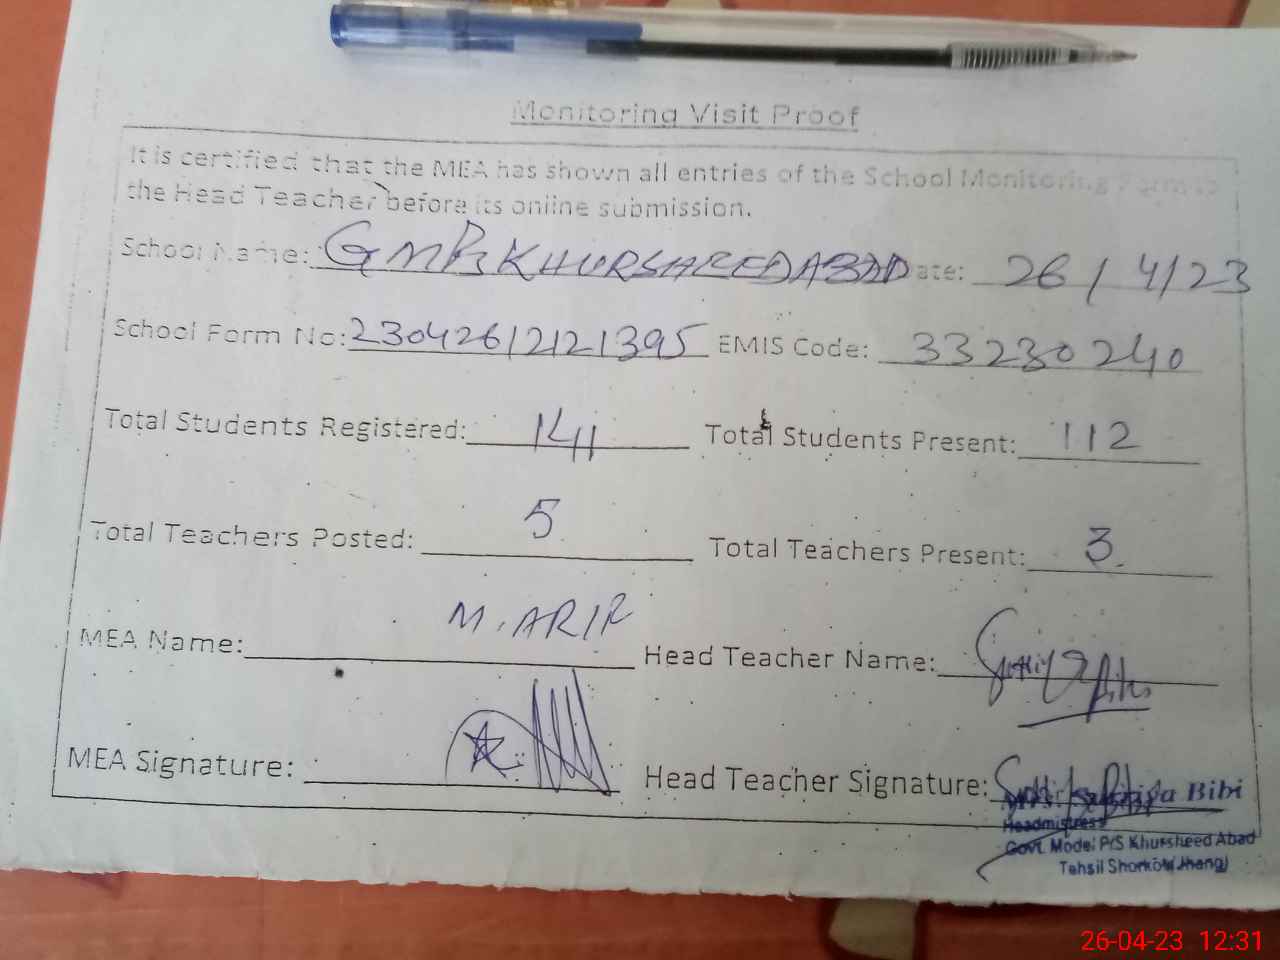 Monitoring Visit Proof
It is certified that the MEA has shown all entries of the School Monitoring Form to
the Head Teacher before its online submission.
School Name: GMPS KHURSHEEDABAD Date: 26/4/23
School Form No: 23042612121395 EMIS Code: 33230240
Total Students Registered: 141 Total Students Present: 112
Total Teachers Posted: 5 Total Teachers Present: 3
MEA Name: M. ARIF Head Teacher Name:
MEA Signature: Head Teacher Signature:
Bibi
Headmistress
Govt. Model P/S Khursheed Abad
Tehsil Shorkot (Jhang)
26-04-23 12:31